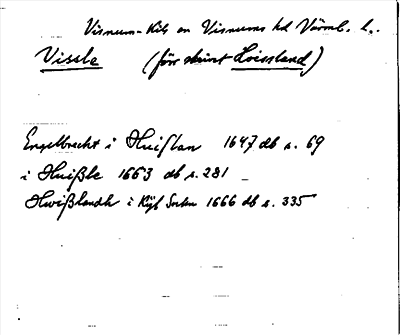 Visnum-Kils sn Visnums hd Värml. l.
Vissle (förr skrivet Hvissland)
Engelbrecht i Huißlan 1647 db s. 69
i Huißle 1663 db s. 281
Hwißlandh i Kijl Sochn 1666 db s. 335